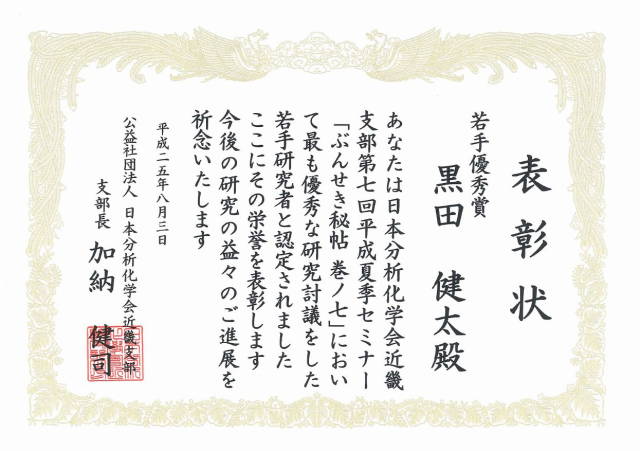 表彰状
若手優秀賞
黒田 健太殿
あなたは日本分析化学会近畿
支部第七回平成夏季セミナー
「ぶんせき秘帖 巻ノ七」におい
て最も優秀な研究討議をした
若手研究者と認定されました
ここにその栄誉を表彰します
今後の研究の益々のご進展を
祈念いたします
平成二五年八月三日
公益社団法人 日本分析化学会近畿支部
支部長 加納 健司